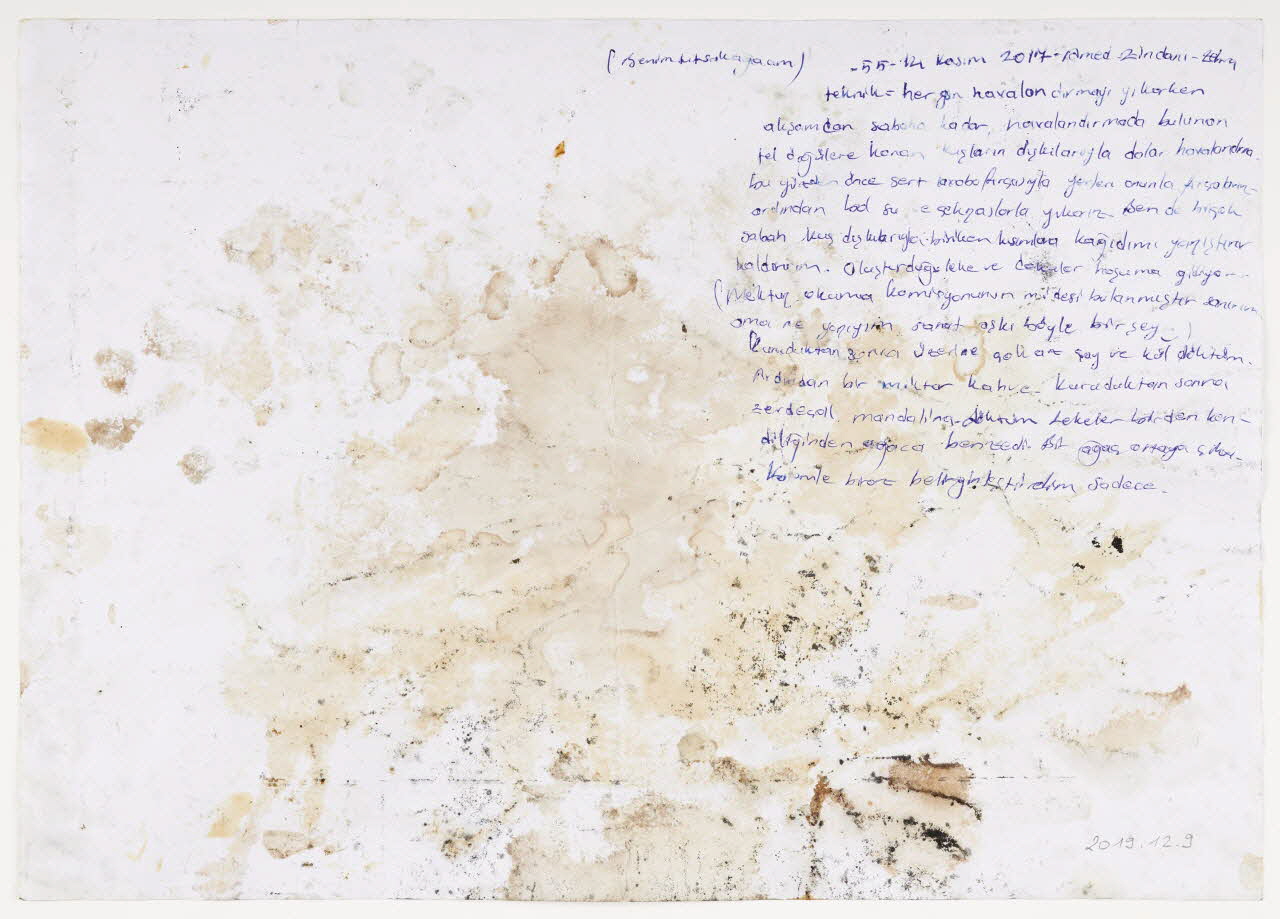 (Benim kayaam) -55- 14 Kasım 2017 - Amed Zindanı - Zehra
teknik = her gün havalandırmayı yıkarken
akşamdan sabaha kadar, havalandırmada bulunan
tel örgülere konan kuşların dışkılarıyla dolar havalandırma.
bu yüzden önce sert araba fırçasıyla yerleri onunla fırçalarız
ardından bol su ve çekpaslarla yıkarız. Ben de birçok
sabah kuş dışkılarıyla biriken kısımlara kağıdımı yapıştırır
kaldırırım. Oluşturduğu leke ve dokular hoşuma gidiyor...
(Mektup okuma komisyonunun midesi bulanmıştır sanırım
ama ne yapayım, sanat aşkı böyle bir şey :)
Kuruduktan sonra üzerine çay ve kül döktüm.
Ardından bir miktar kahve. Kuruduktan sonra
zerdeçal, mandalina döktüm. Lekeler birden ken-
diliğinden ağaca benzedi. Bir ağaç ortaya çıktı.
Kalemle biraz belirginleştirdim sadece.
2019.12.9